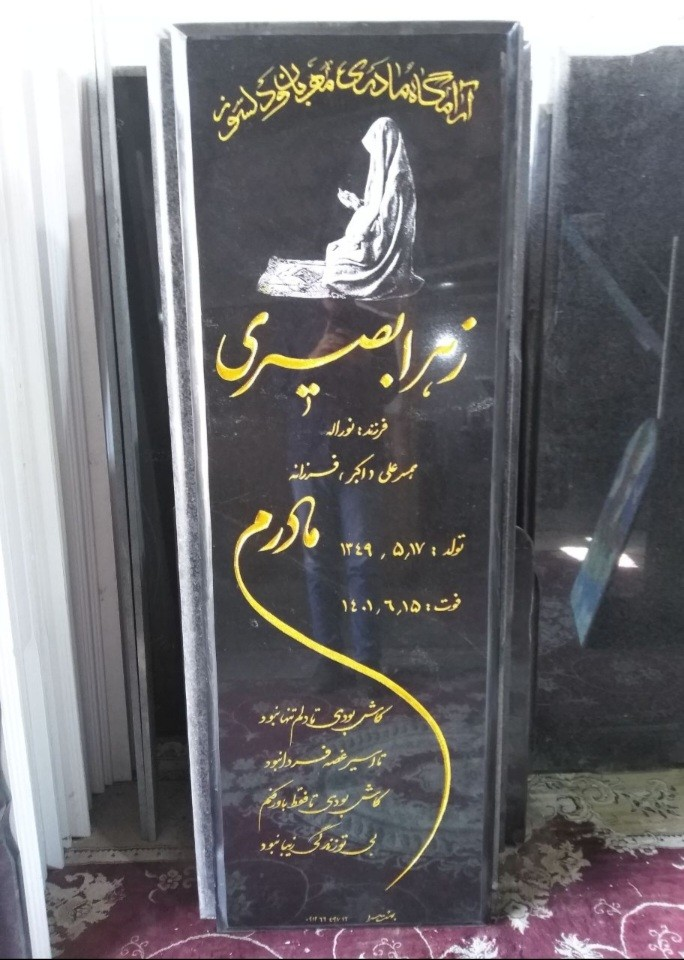 آرامگاه مادری مهربان و دلسوز
زهرا بصیری
فرزند: نوراله
همسر علی و اکبر، فرزانه
مادرم
تولد: ۱۷٫۵٫۱۳۴۹
فوت: ۱۵٫۶٫۱۴۰۱
کاش بودی تا دلم تنها نبود
تا اسیر غصه فردا نبود
کاش بودی تا فقط باور کنم
بی تو زندگی زیبا نبود